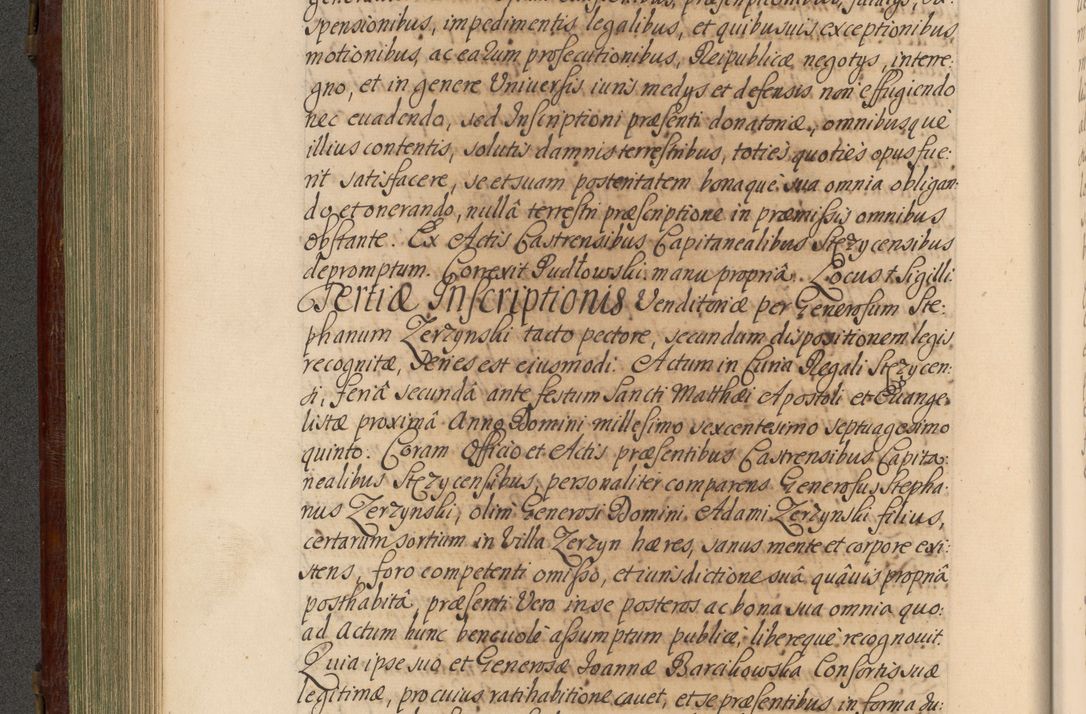 pensionibus, impedimentis legalibus, et quibusuis exceptionibus
motionibus, ac earum prosecutionibus, Reipublicæ negotys, interre:
gno, et in genere Universis iuris medys et defensis non effugiendo
nec euadendo, sed Inscriptioni præsenti donatoriæ, omnibusquè
illius contentis, solutis damnis terrestribus, totiès quotiès opus fue:
rit satisfacere, se et suam posteritatem bonaquè sua omnia obligan:
do et onerando, nullâ terrestri præscriptione in præmissis omnibus
obstante. Ex Actis Castrensibus Capitanealibus Stęzycensibus
depromptum. Correxit Pudłowski manu propriâ. Locus † Sigilli:
Tertiæ Inscriptionis Venditoriæ per Generosum Ste:
phanum Zerzynski tacto pectore, secundum dispositionem legis
recognitæ, Séries est eiusmodi. Actum in Curia Regali Stęzycen:
si, feriâ secundâ ante festum Sancti Matthæi Apostoli et Euange:
listæ proximâ Anno Domini millesimo sexcentesimo septuagesimo
quinto. Coram Officio et Actis præsentibus Castrensibus Capita:
nealibus Stęzycensibus, personaliter comparens Generosus Stepha:
nus Zerzynski, olim Generosi Domini Adami Zerzynski filius,
certarum sortium in Villa Zerzyn hæres, sanus mente et corpore exi:
stens, foro competenti omisso, et iurisdictione suâ quâuis propriâ
posthabitâ, præsenti Vero in se posteros ac bona sua omnia quo:
ad Actum hunc beneuolè assumptum publicè, liberequè recognouit.
Quia ipse suo et Generosæ Joannæ Barcikowska Consortis suæ
legitimæ, pro cuius ratihabitione cauet, et se præsentibus in forma du: